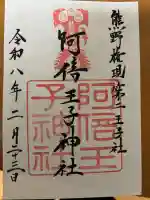 熊野権現第二王子社
阿倍王子神社
令和八年二月二十三日
阿倍王
子神社